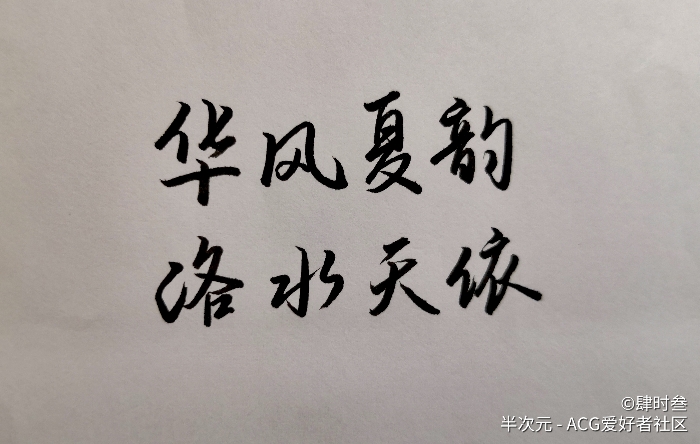 华风夏韵
洛水天依
©肆时叁
半次元 - ACG爱好者社区